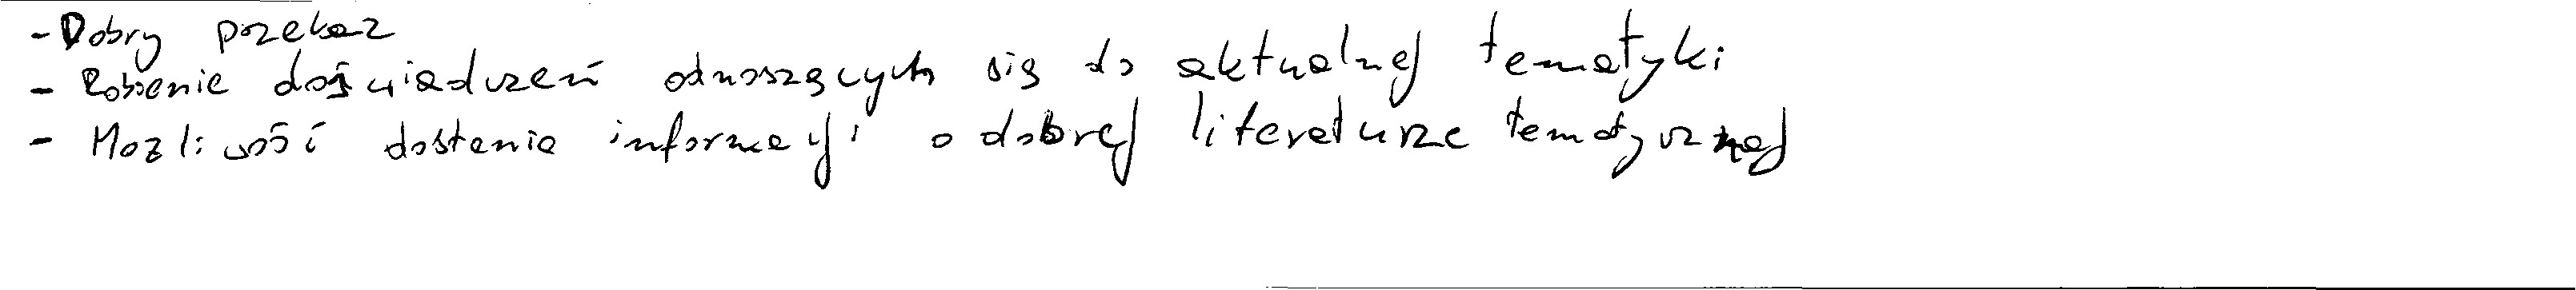 - Dobry przekaz
- Robienie doświadczeń odnoszących się do aktualnej tematyki
- Mozliwość dostania informacji o dobrej literaturze tematycznej